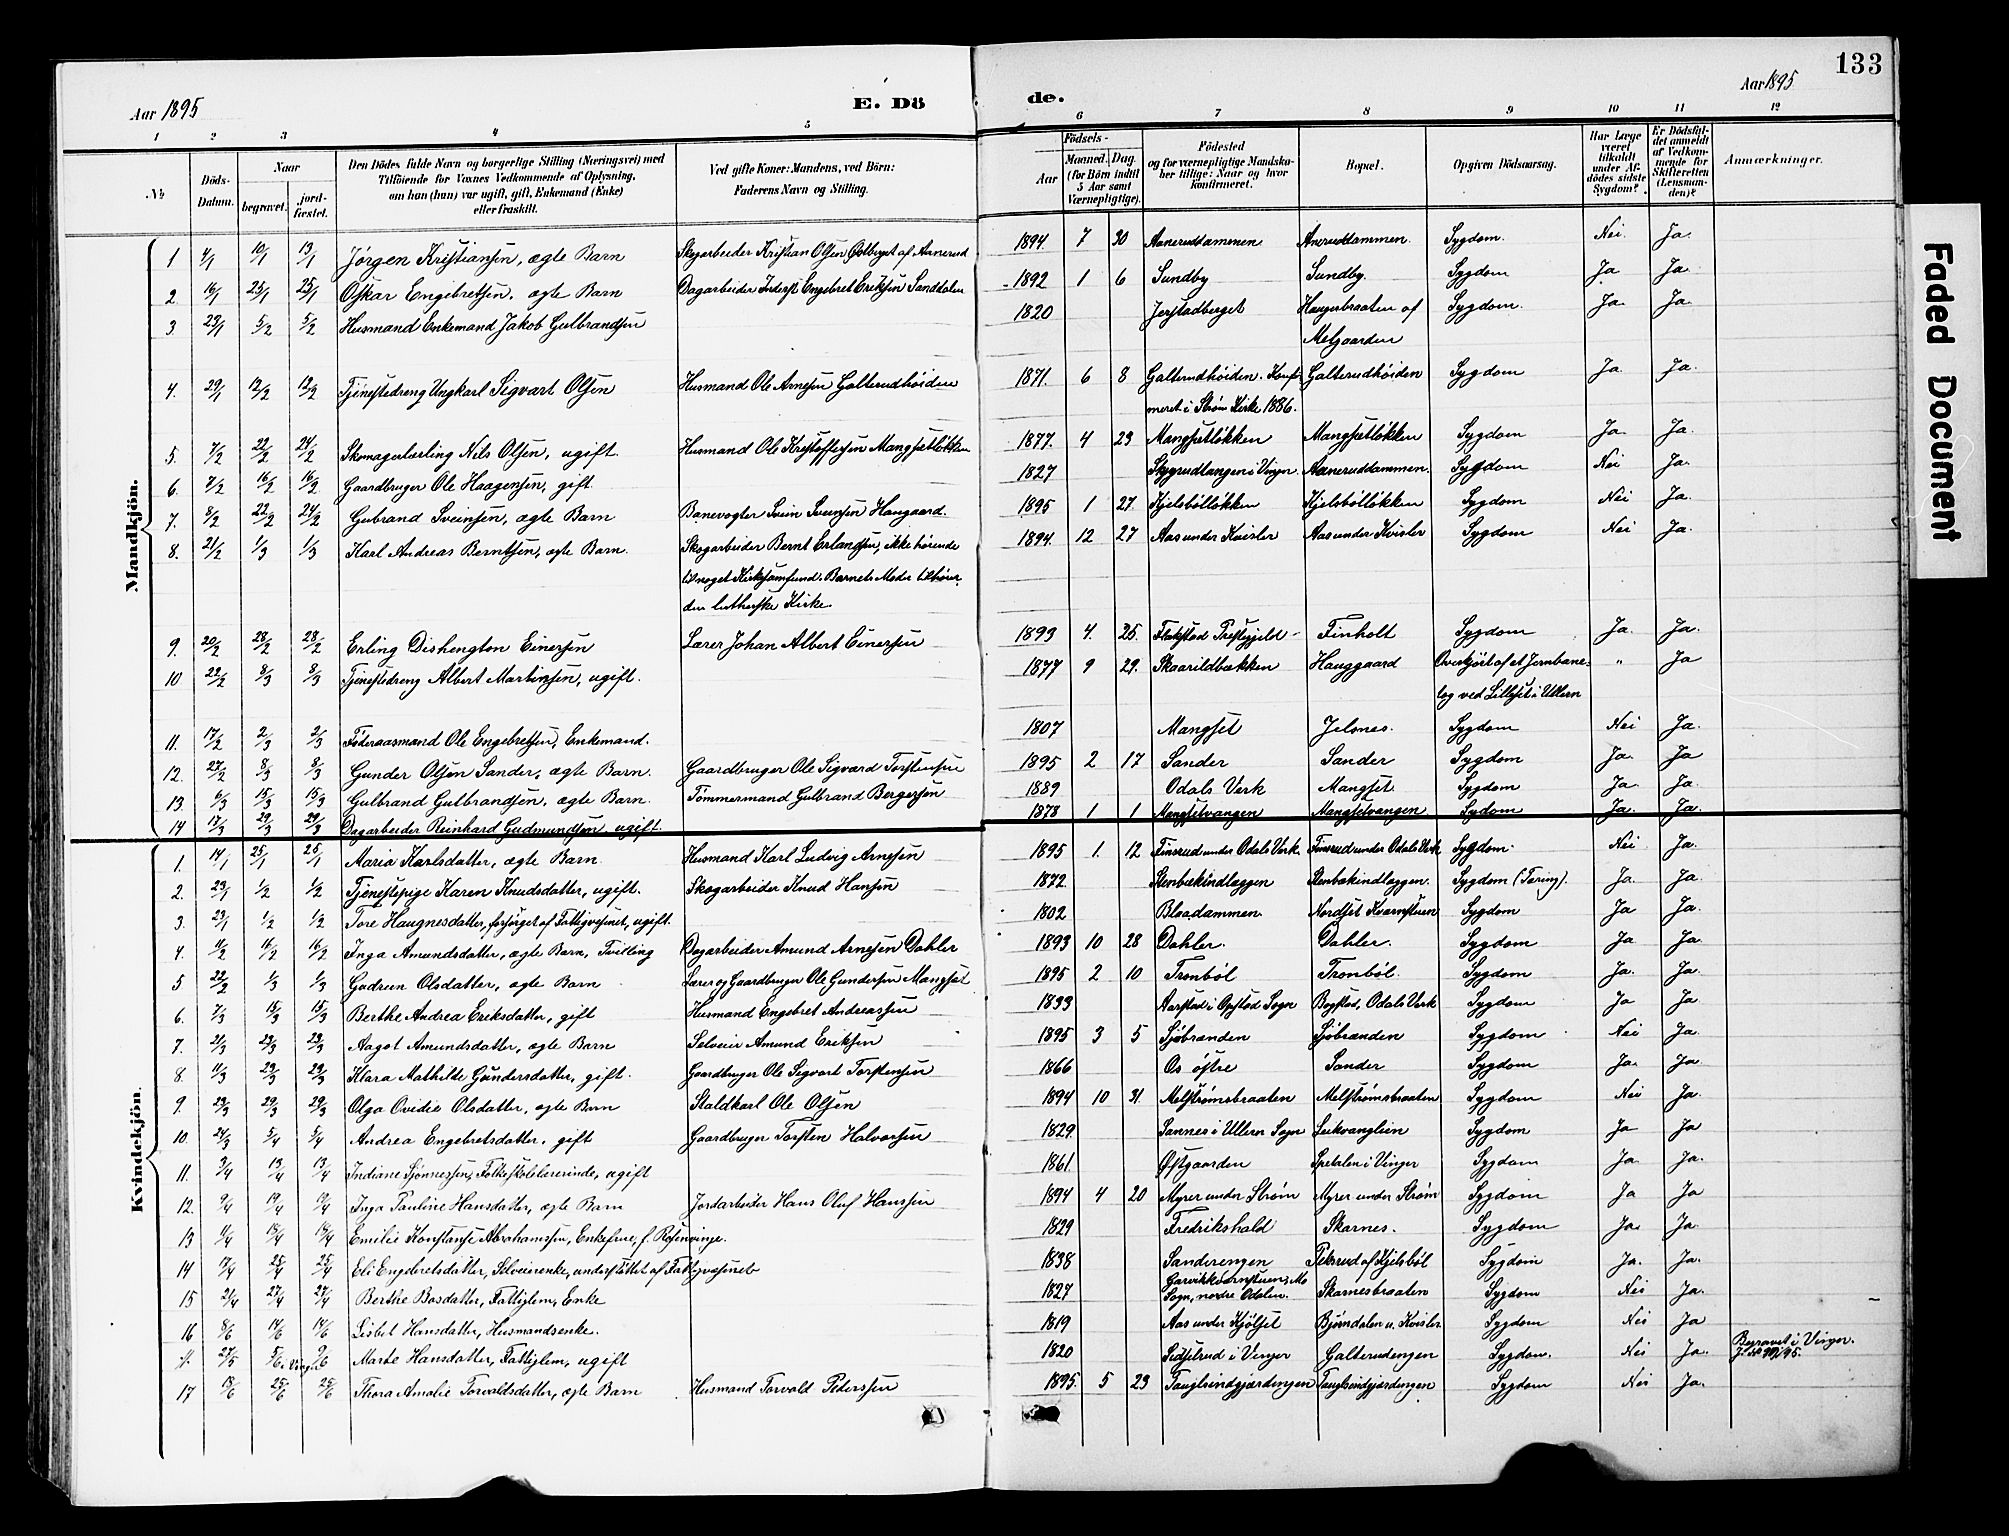 133
Aar 1895
E. Dö
de.
Aar 1895
1 2 3 4 5 6 7 8 9 10 11 12
Nº
Döds-Datum.
Naar
begravet.
jord-fæstet.
Den Dödes fulde Navn og borgerlige Stilling (Næringsvei) med
Tilföiende for Voxnes Vedkommende af Oplysning,
om han (hun) var ugift, gift, Enkemand (Enke)
eller fraskilt.
Ved gifte Koner: Mandens, ved Börn:
Faderens Navn og Stilling.
Födsels-
Aar
Maaned. Dag.
(for Börn indtil
5 Aar samt
Værnepligtige).
Födested
og for værnepligtige Mandska-
ber tillige: Naar og hvor
konfirmeret.
Bopæl.
Opgiven Dödsaarsag.
Har Læge
været
tilkaldt
under Af-
dödes sidste
Sygdom?
Er Dödsfal-
det anmeldt
af Vedkom-
mende for
Skifteretten
(Lensman-
den)?
Anmærkninger.
Mandkjön.
1 4/1 10/1 13/1 Jørgen Kristiansen, ægte Barn Skogarbeider Kristian Olsen af Aanerud 1894 7 30 Aaneruddammen Aneruddammen Sygdom. Nei. Ja.
2 16/1 25/1 25/1 Oskar Engebretsen, ægte Barn Dagarbeider Inderst Engebret Eriksen Sanddalen 1892 1 6 Sundby Sundby. Sygdom Ja Ja
3 23/1 5/2 5/2 Husmand Enkemand Jakob Gulbrandsen 1820 Jerstadberget Haugerbraaten af Sygdom. Ja. Ja
Melgaarden
4. 29/1 12/2 12/2 Tjenestedreng Ungkarl Sigvart Olsen Husmand Ole Arnesen Galterudhøiden 1871. 6 8 Galterudhøiden. Konfir- Galterudhøiden Sygdom Ja Ja.
meret i Strøm Kirke 1886.
5. 7/2 22/2 24/2 Skomagerlærling Nels Olsen, ugift Husmand Ole Kristoffersen Mangsetløkken 1877. 4 23 Mangsetløkken Mangsetløkken Sygdom Ja. Ja.
6. 7/2 16/2 16/2 Gaardbruger Ole Haagensen, gift 1827 Skyrudlangen i Vinger. Aaneruddammen. Sygdom Nei Ja.
7. 8/2 22/2 24/2 Gubrand Sveinsen, ægte Barn Banevogter Svein Sveinsen Haugaard. 1895 1 27. Kjelsbølløkken Kjelsbølløkken Sygdom Nei Ja.
8. 21/2 1/3 1/3 Karl Andreas Berntsen, ægte Barn. Skogarbeider Bernt Erlandsen, ikke hørende 1894. 12 27 Aas under Kvisler Aas under Kvisler Sygdom Nei Ja.
til noget Kirkesamfund. Barnets Moder tilhører
den lutherske Kirke.
9. 20/2 28/2 28/2 Erling Dishengton Einersen Lærer Johan Albert Einersen 1893 4. 25. Flakstad Prestegjeld - Finholt Sygdom Ja. Ja.
10 22/2 8/3 8/3 Tjenestedreng Albert Martinsen, ugift. 1877 9 29. Skaarildbækken Hauggaard Overkjørt af et Jernbane- " Ja
tog ved Lillset i Ullern
11. 17/2 2/3 2/3 Føderaadsmand Ole Engebretsen, Enkemand. 1807 Mangset Jelsnes. Sygdom Nei Ja.
12. 27/2 8/3 8/3 Gunder Olsen Sander, ægte Barn. Gaardbruger Ole Sigvard Torstensen 1895 2 17 Sander Sander Sygdom Ja. Ja
13 6/3 15/3 15/3 Gulbrand Gulbrandsen, ægte Barn. Tømmermand Gulbrand Bergersen 1889 Odals Verk Mangset Sygdom Ja. Ja.
14 17/3 29/3 29/3 Dagarbeider Reinhard Gudmundsen ugift. 1878 1 1 Mangsetvangen Mangsetvangen Sydom Ja. Ja.
Kvindekjön.
1. 14/1 25/1 25/1 Maria Karlsdatter, ægte Barn Husmand Karl Ludvig Arnesen 1895 1. 12 Finsrud under Odals Verk. Finsrud under Odals Verk Sygdom. Nei Ja.
2. 23/1 1/2 1/2 Tjenestepige Karen Knudsdatter, ugift. Skogarbeider Knud Hansen 1872. Stenbækindlæggen Stenbækindlæggen. Sygdom (Tæring). Ja. Ja.
3. 23/1 1/2 1/2 Tore Haugnesdatter, forsørget af Fattigvesenet, ugift. 1802 Blaadammen. Nordset Kværnstuen Sygdom Ja Ja.
4. 4/2 16/2 16/2 Inga Amundsdatter, ægte Barn, Tvilling Dagarbeider Amund Arnesen Dahler 1893 10 28 Dahler. Dahler. Sygdom Ja Ja.
5 22/2 1/3 1/3 Gudrun Olsdatter, ægte Barn Lærer og Gaardbruger Ole Gundersen Mangset 1895 2 10 Tronbøl Tronbøl. Sygdom Ja. Ja.
6. 7/3 15/3 15/3 Berthe Andrea Eriksdatter, gift Husmand Engebret Andreassen 1833 Aarstad i Opstad Sogn Bogstad, Odals Verk Sygdom Ja Ja.
7. 21/3 23/3 23/3 Aagot Amundsdatter, ægte Barn Selveier Amund Eriksen 1895 3 5 Sjøbranden Sjøbranden Sygdom Nei Ja.
8. 11/3 29/3 29/3 Klara Mathilde Gundersdatter, gift. Gaardbruger Ole Sigvart Torstensen 1866 Os østre Sander Sygdom Ja. Ja
9. 23/3 29/3 29/3 Olga Ovidie Olsdatter, ægte Barn Staldkarl Ole Olsen 1894 10 31. Melstrømsbraaten Melstrømsbraaten Sygdom Nei Ja.
10. 24/3 5/4 5/4 Andrea Engebretsdatter, gift Gaardbruger Torsten Halvorsen 1829. Sannes i Ullern Sogn Leikvanglien Sygdom Ja Ja
11. 3/4 13/4 13/4 Indiane Sjønnesen, Folkeskolelærerinde, ugift 1861. Østgaarden Spetalen i Vinger Sygdom Ja. Ja.
12. 9/4 19/4 19/4 Inga Pauline Hansdatter, ægte Barn Jordarbeider Hans Oluf Hanssen 1894 4 20 Myrer under Strøm Myrer under Strøm Sygdom Ja Ja
13 11/4 18/4 18/4 Emilie Konstanse Abrahamssen, Enkefrue, f. Rosenvinge. 1829 Fredrikshald Skarnes. Sygdom Ja. Ja.
14 17/4 25/4 25/4 Eli Engebretsdatter, Selveierenke, understøttet af Fattigvæsenet 1838 Sanderengen Peksrud af Kjelsbøl Sygdom Ja. Ja.
15 21/4 27/4 27/4 Berthe Bosdatter, Fattiglem, Enke 1827 Garvikkværnstuen, Mo Sogn, nordre Odalen. Skarnesbraaten Sygdom Nei Ja.
16 8/6 14/6 14/6 Lisbet Hansdatter, Husmandsenke. 1819 Aas under Kjølset Bjørndalen u. Kvisler Sygdom Nei Ja
27/5 5/6 i Vinger 9/6 Marte Hansdatter, Fattiglem, ugift 1820 i Vinger Galterudengen Sygdom. Nei Ja. Begravet i Vinger.
17 18/6 25/6 25/6 Thora Amalie Torvaldsdatter, ægte Barn Husmand Torvald Pederssen 1895. 5 23 Sygdom Nei Ja.
Faded Document